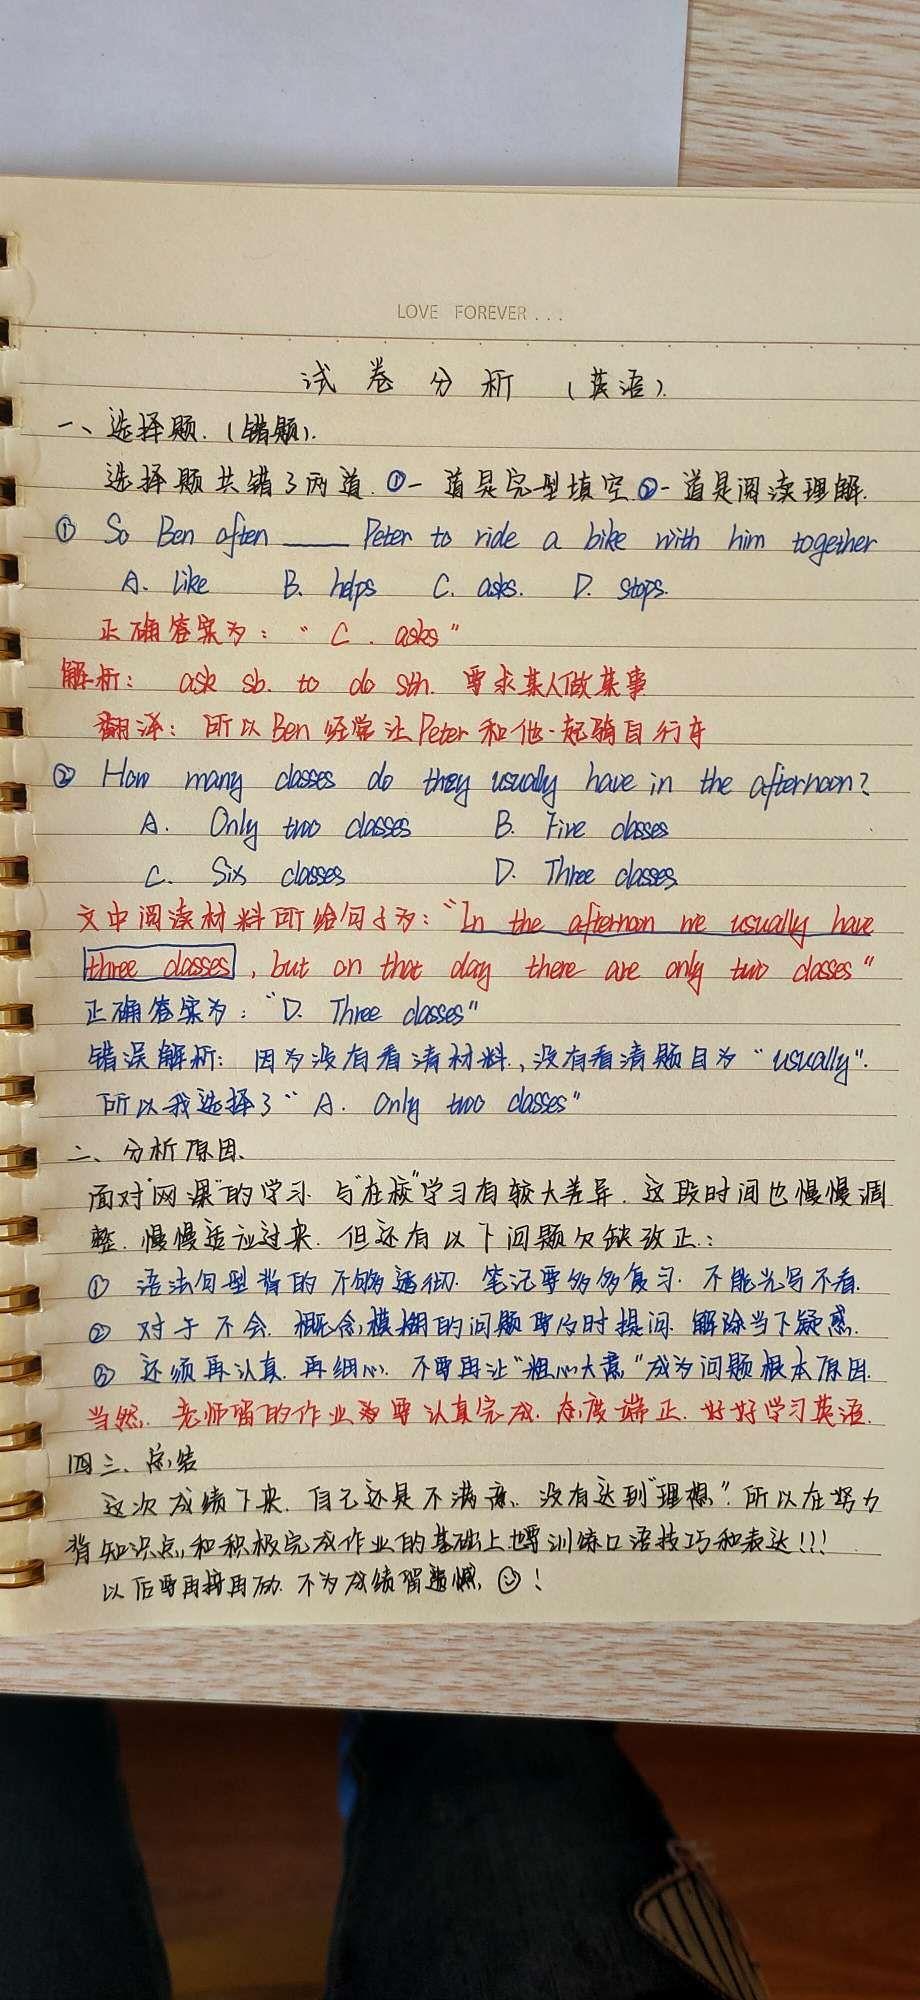 LOVE FOREVER...
试卷分析 (英语).
一、选择题.(错题).
选择题共错了两道.①一道是完型填空②一道是阅读理解.
① So Ben often ____ Peter to ride a bike with him together
A. like B. helps C. asks. D. stops.
正确答案为:“C. asks”
解析: ask sb. to do sth. 要求某人做某事
翻译: 所以Ben经常让Peter和他一起骑自行车
② How many classes do they usually have in the afternoon?
A. Only two classes B. Five classes
C. Six classes D. Three classes
文中阅读材料所给句子为:“In the afternoon we usually have
three classes, but on that day there are only two classes”
正确答案为:“D. Three classes”
错误解析: 因为没有看清材料.,没有看清题目为“usually”.
所以我选择了“A. Only two classes”
二、分析原因.
面对“网课”的学习.与“在校”学习有较大差异.这段时间也慢慢调
整.慢慢适应过来.但还有以下问题欠缺改正.:
① 语法句型背的不够透彻.笔记要多多复习.不能光写不看.
② 对于不会.概念模糊的问题要及时提问.解除当下疑惑.
③ 还须再认真.再细心.不要再让“粗心大意”成为问题根本原因.
当然.老师留下的作业要认真完成.态度端正.好好学习英语.
四三、总结
这次成绩下来.自己还是不满意.没有达到“理想”.所以在努力
背知识点,和积极完成作业的基础上也要训练口语技巧和表达!!!
以后要再接再励.不为成绩留遗憾.☺!